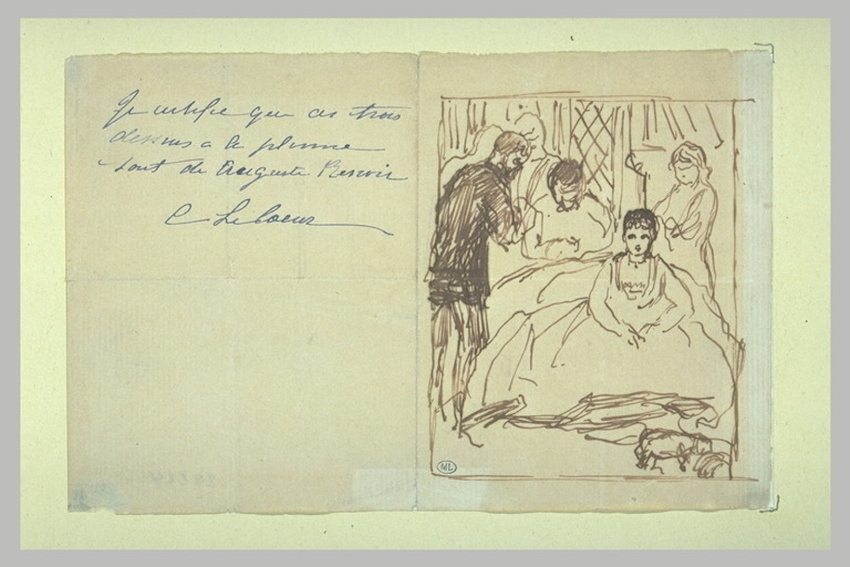 Je certifie que ces trois
dessins a la plume
sont de Auguste Renoir
C Le Coeur
ML